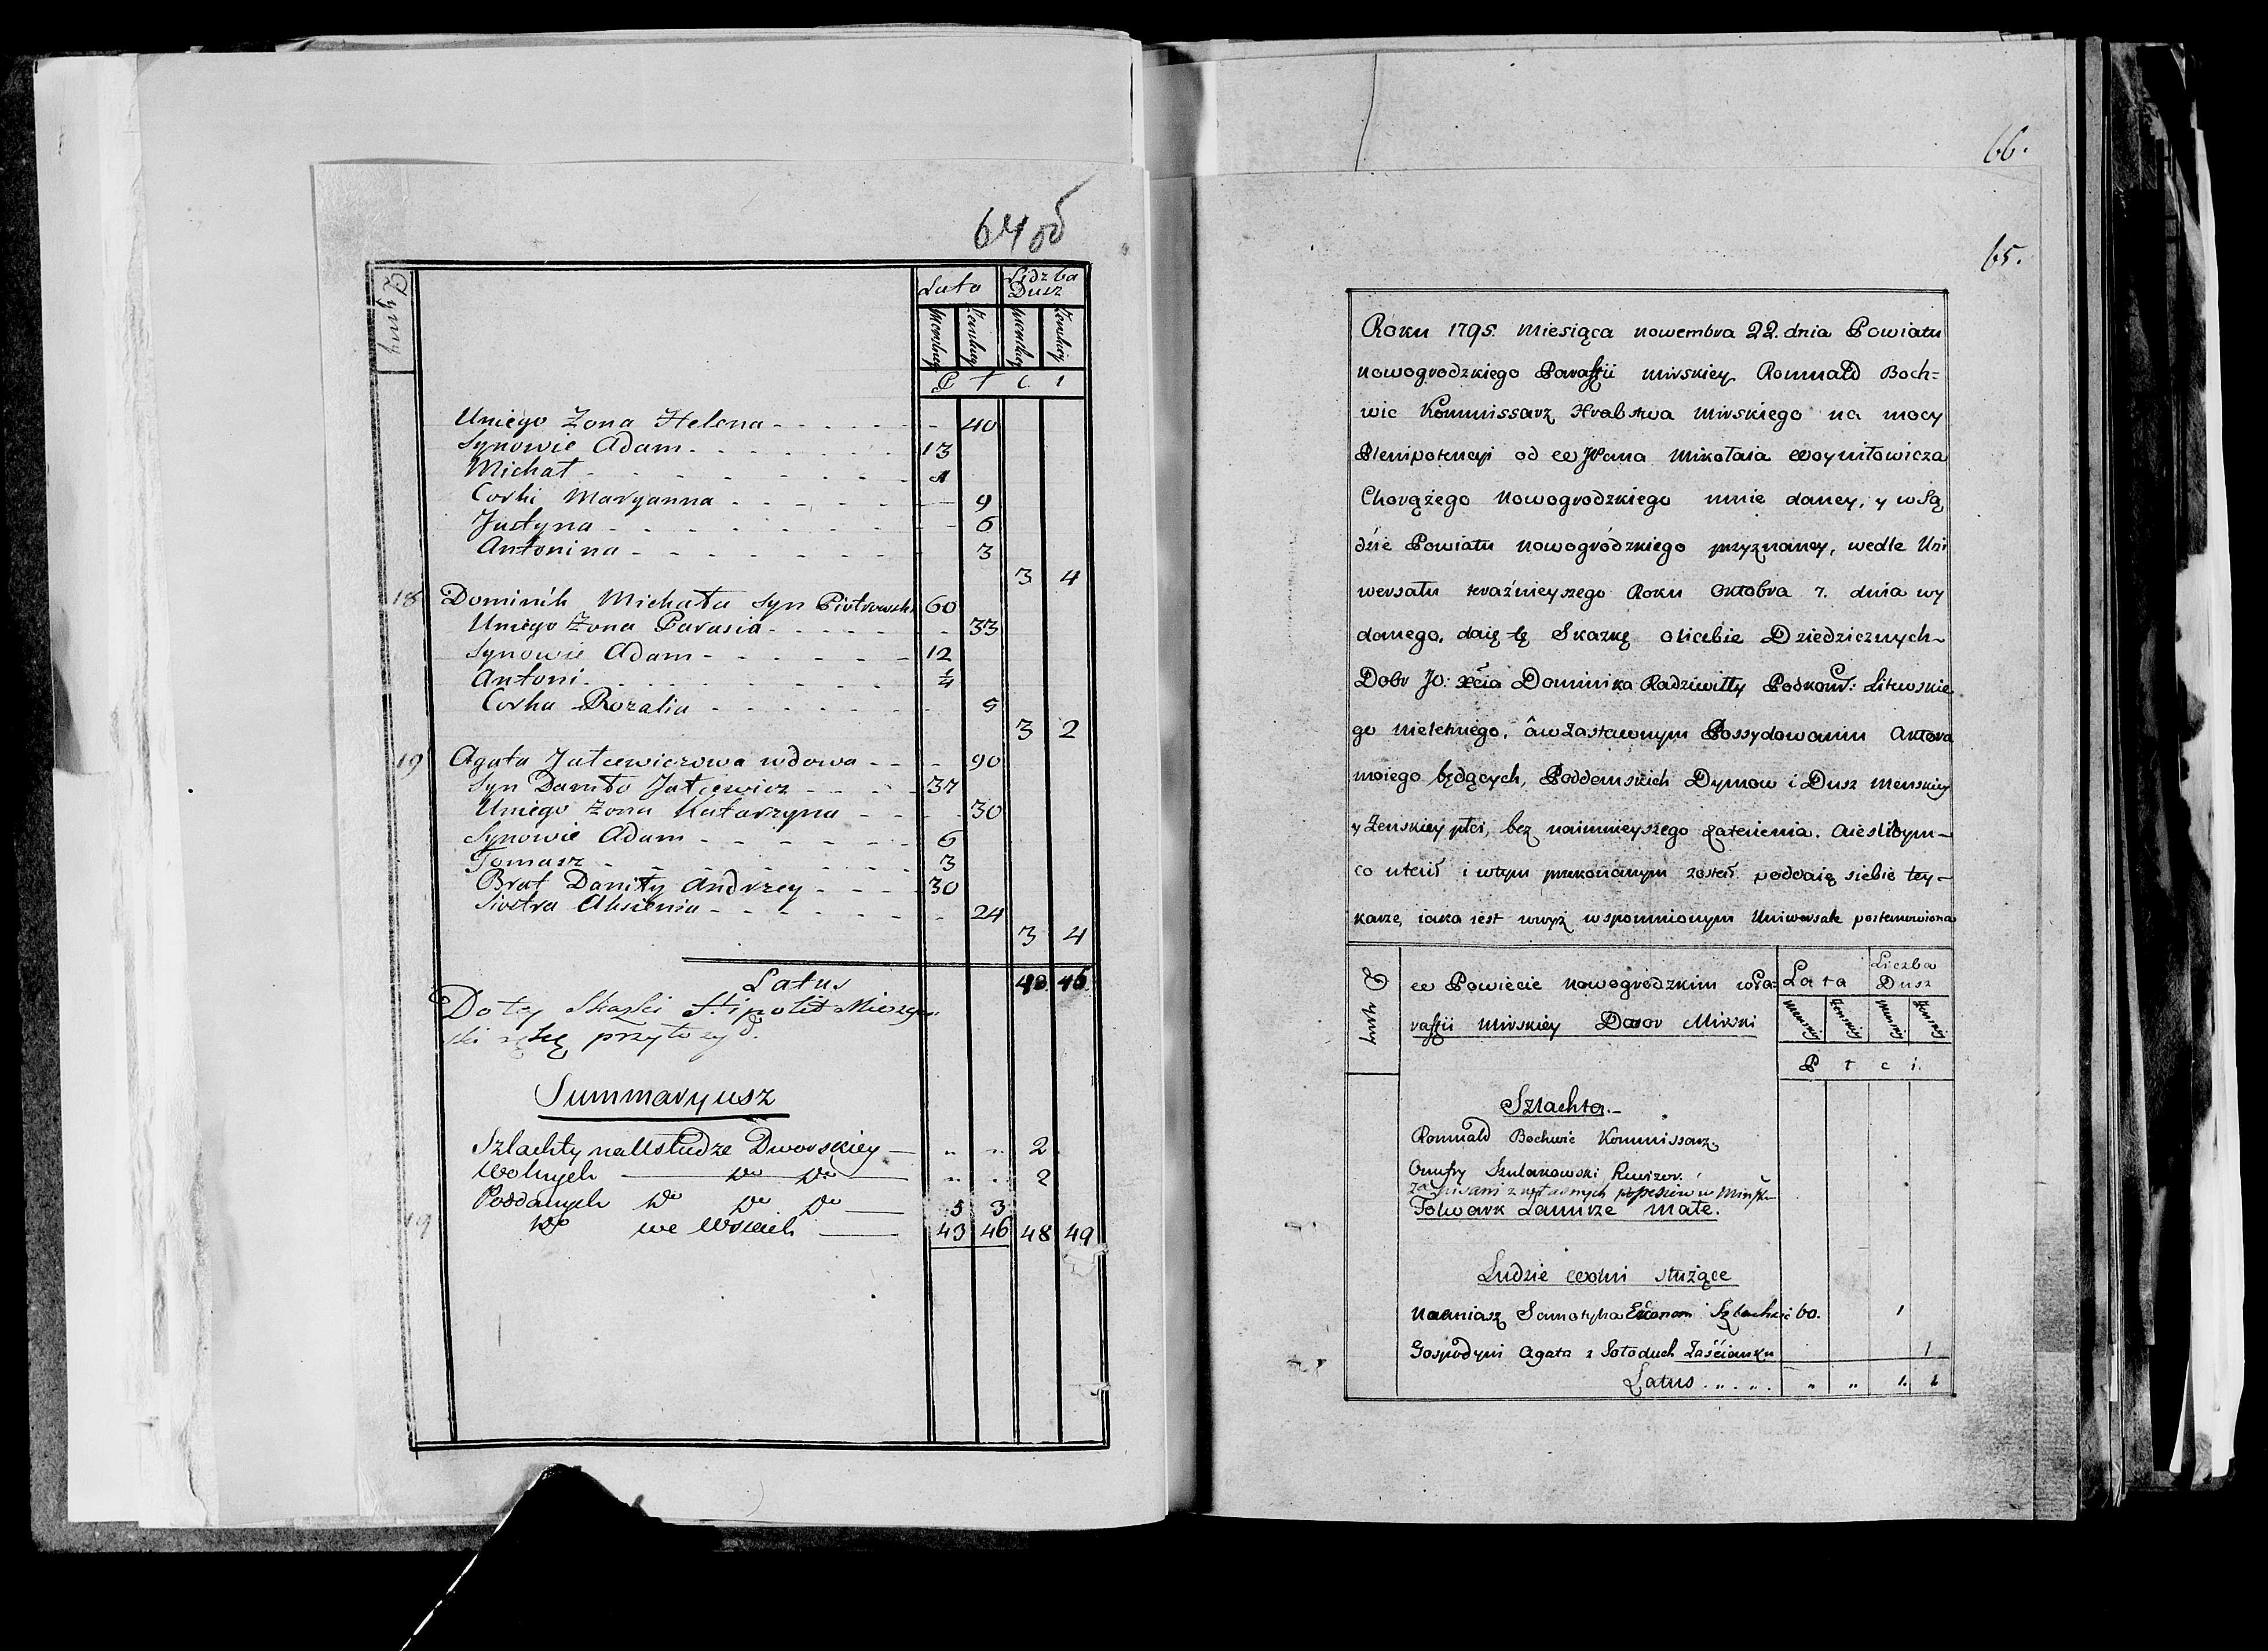 64 об
Dymy
Lata
Lidzba
Dusz
męskiey
żenskiey
męskiey
żenskiey
P ł c i
Uniego Żona Helena - - - - - - 40
Synowie Adam - - - - - - 13
Michał - - - - - -
Corki Maryanna - - - - - 9
Justyna - - - - - - - 6
Antonina - - - - - - - 3
3 4
18 Dominik Michała syn Piotrowski 60
Uniego Żona Parasia - - - - - 33
Synowie Adam - - - - - - 12
Antoni - - - - - - - ¼
Corka Rozalia - - - - - - 5
3 2
19 Agata Jatcewiczowa wdowa - - - 90
Syn Daniło Jatcewicz - - - - 37
Uniego Żona Katarzyna - - - - 30
Synowie Adam - - - - - - 6
Tomasz - - - - - - - 3
Brat Daniły Andrzey - - - - 30
Siostra Aksienia - - - - - - 24
3 4
Latus
Do tey Skazki Hipolit
ski rękę przyłozył.
Summaryusz
Szlachty na Usłudze Dworskiey — „ „ 2
Wolnych — Do Do — „ „ 2
Poddanych Do Do Do — 5 3
19 Do we Wsiach — 43 46 48 49
66.
65.
Roku 1795 Miesiąca nowembra 22. dnia Powiatu
nowogrodzkiego Parafii Mirskiey Romuald Boch=
wic Kommissarz Hrabstwa Mirskiego na mocy
Plenipotencyi od W JPana Mikołaia Woyniłowicza
Chorążego Nowogrodzkiego mnie daney, y w Są
dzie Powiatu nowogródzkiego przyznaney, wedle Uni
wersału teraźnieyszego Roku Oktobra 7. dnia wy
danego, daię tę Skazkę o liczbie Dziedzicznych-
Dobr JO: Xcia Dominika Radziwiłły Podkom: Litewskie
go nieletniego, a w Zastawnym Possydowaniu Aktora
moiego będących, Poddanskich Dymow i Dusz Menskiey
y Żenskiey płci, bez naimnieyszego zataienia. A ieslibym-
co utaił i w tym przekonanym został poddaię siebie tey-
karze, iaka iest wwyż wspomnionym Uniwersale postanowiona
Dymy
W Powiecie nowogródzkim w Pa=
rafii Mirskiey Dwor Mirski
Lata
Liczba
Dusz
Menskiey
Żenskiey
Menskiey
Żenskiey
P ł c i.
Szlachta.-
Romuald Bochwic Kommissarz.
Onufry Szulakowski Rewizor.
Folwark Zamirze małe.
Ludzie Wolni służące
Samotyha Ekonom Szlachcic 60. 1
Gospodyni Agata z Sołoduch Zaścianku 1
Latus . „ . „ . „ „ 1. 1